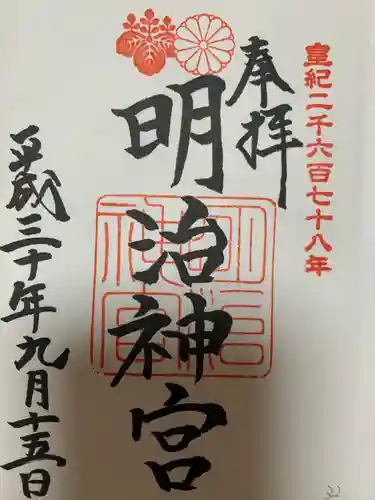 皇紀二千六百七十八年
奉拝
明治神宮
明治
神宮
平成三十年九月十五日